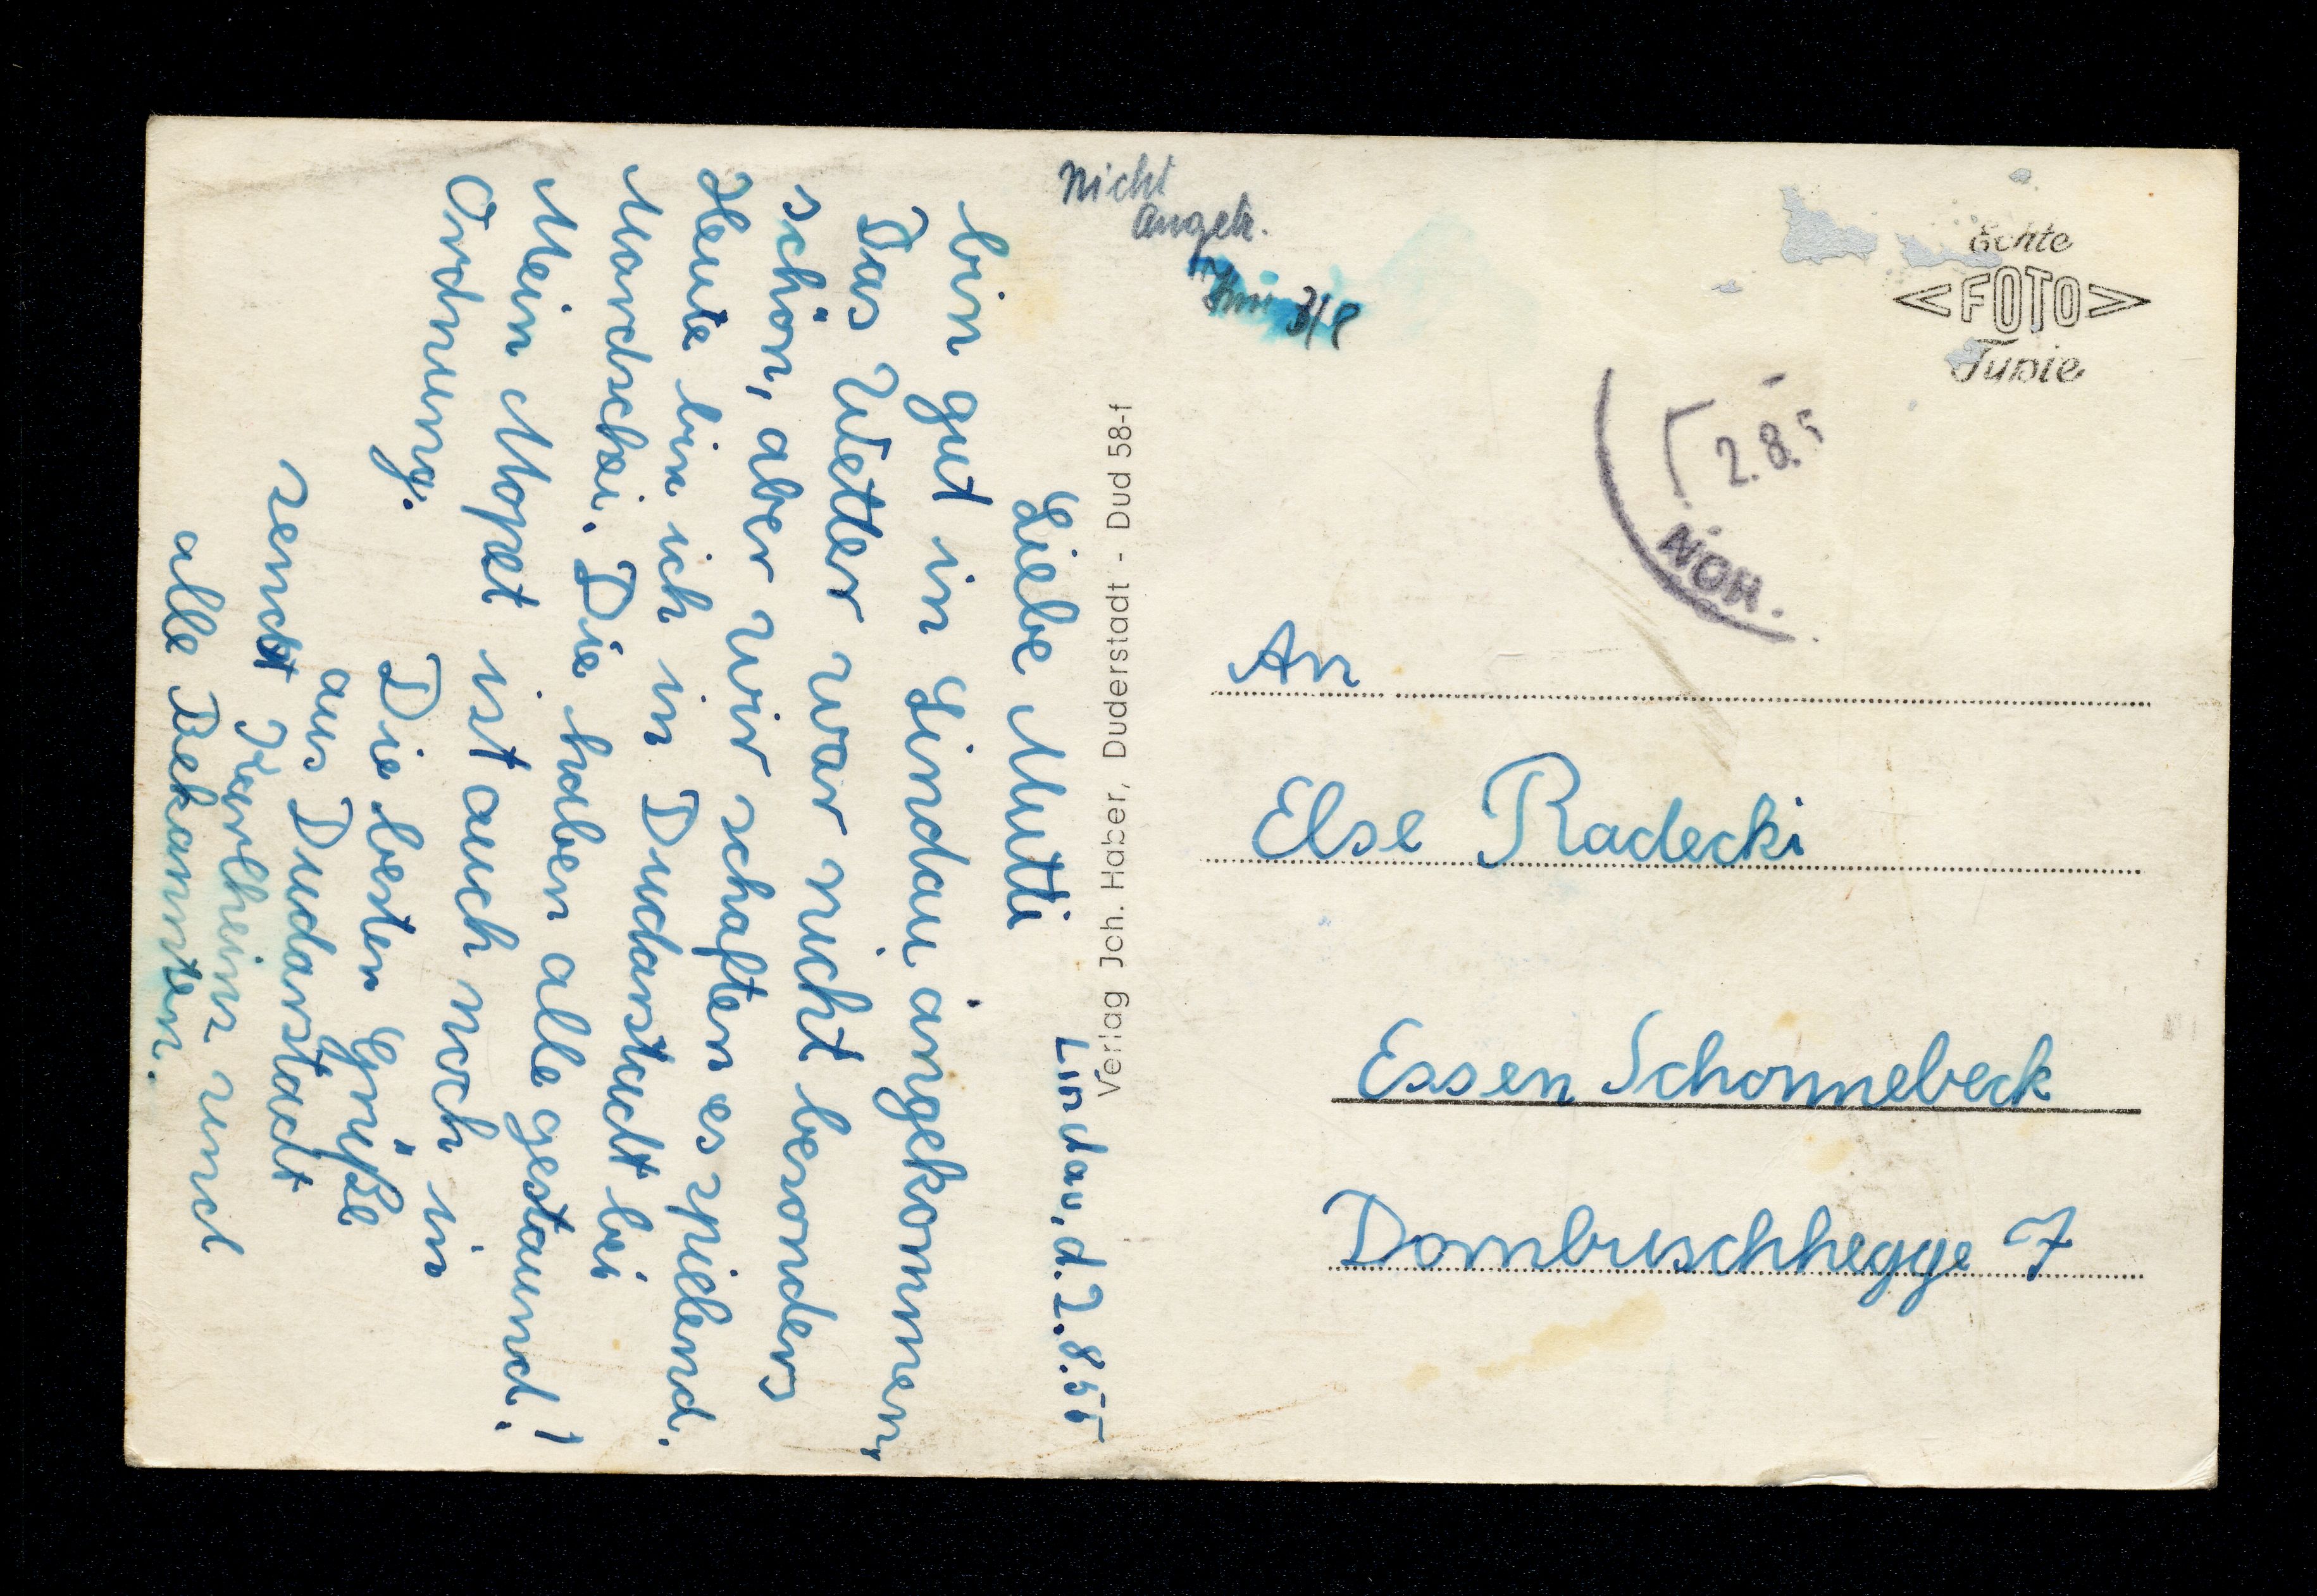 Lindau, d. 2.8.55
Liebe Mutti
bin gut in Lindau angekommen,
Das Wetter war nicht besonders
schön, aber wir schaften es spielend.
Heute bin ich in Dudarstadt bei
Mandschei. Die haben alle gestaund.!
Mein Mopet ist auch noch in
Ordnung.
Die besten Grüße
aus Dudarstadt
senct Karlheinz und
alle Bekannten.
Verlag Joh. Haber, Duderstadt - Dud 58-f
Nicht
angetr.
3/8
Echte
<FOTO>
Typie
2.8.5
NOM.
An
Else Radecki
Essen Schonnebeck
Dombruschhegge 7